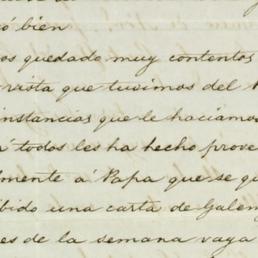 ó bien
os quedado muy contentos
vista que tuvimos del
instancias que le hacíamos
todos les ha hecho prove
lmente á Papa que se qu
bido una carta de Galen
es de la semana vaya